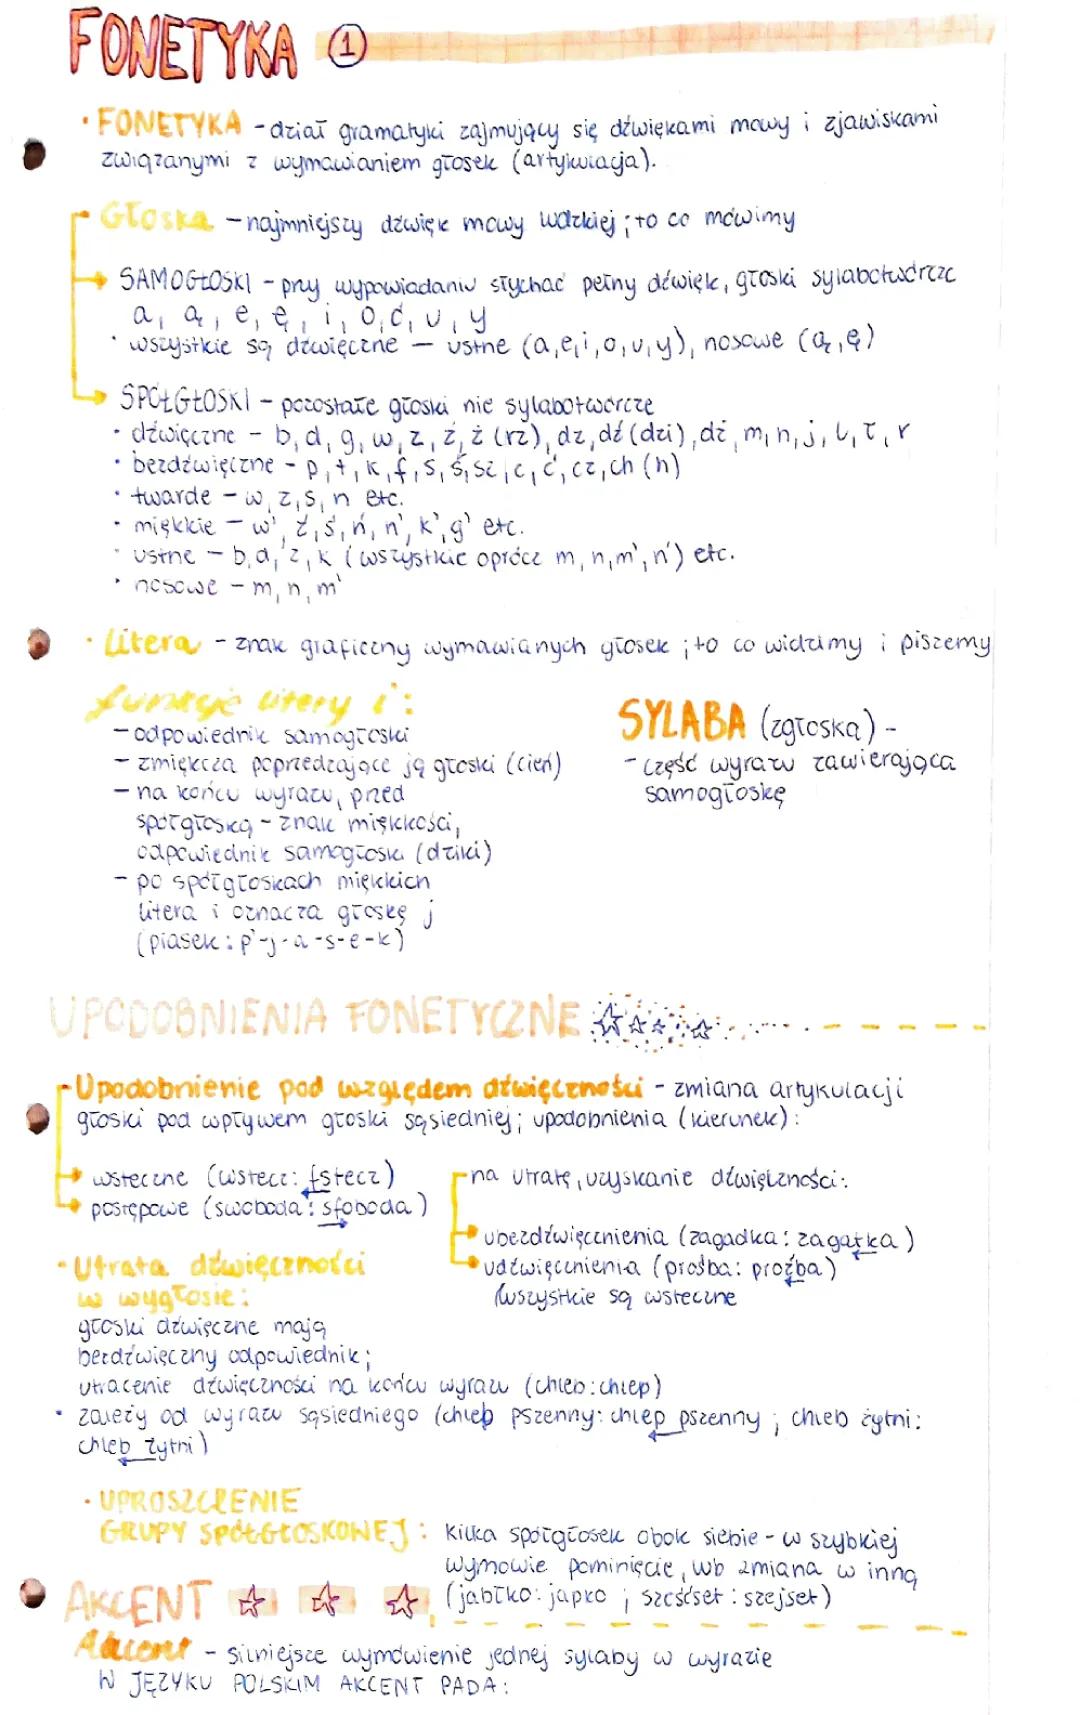 FONETYKA 1
• FONETYKA - dział gramatyki zajmujący się dźwiękami mowy i zjawiskami
związanymi z wymawianiem głosek (artykulacja).
• Głoska - najmniejszy dźwięk mowy ludzkiej ; to co mówimy
SAMOGŁOSKI - przy wypowiadaniu słychać pełny dźwięk, głoski sylabotwórcze
a, ą, e, ę, i, o, ó, u, y
• wszystkie są dźwięczne — ustne (a,e,i,o,u,y), nosowe (ą,ę)
SPÓŁGŁOSKI - pozostałe głoski nie sylabotwórcze
• dźwięczne - b, d, g, w, z, ź, ż (rz), dz, dź (dzi), dż, m, n, j, l, ł, r
• bezdźwięczne - p, t, k, f, s, ś, sz, c, ć, cz, ch (h)
• twarde - w, z, s, n etc.
• miękkie - w', ź, ś, ń, n', k', g' etc.
• ustne - b, d, z, k (wszystkie oprócz m, n, m', n') etc.
• nosowe - m, n, m'
• Litera - znak graficzny wymawianych głosek ; to co widzimy i piszemy
funkcje litery i :
- odpowiednik samogłoski
- zmiękcza poprzedzające ją głoski (cień)
- na końcu wyrazu, przed
spółgłoską - znak miękkości,
odpowiednik samogłoski (dziki)
- po spółgłoskach miękkich
litera i oznacza głoskę j
(piasek : p'-j-a-s-e-k)
SYLABA (zgłoska) -
- część wyrazu zawierająca
samogłoskę
UPODOBNIENIA FONETYCZNE
Upodobnienie pod względem dźwięczności - zmiana artykulacji
głoski pod wpływem głoski sąsiedniej ; upodobnienia (kierunek) :
wsteczne (wstecz : fstecz)
postępowe (swoboda : sfoboda)
na utratę, uzyskanie dźwięczności :
ubezdźwięcznienia (zagadka : zagatka)
udźwięcznienia (prośba : proźba)
wszystkie są wsteczne
• Utrata dźwięczności
w wygłosie :
głoski dźwięczne mają
bezdźwięczny odpowiednik ;
utracenie dźwięczności na końcu wyrazu (chleb : chlep)
• zależy od wyrazu sąsiedniego (chleb pszenny : chlep pszenny ; chleb żytni :
chleb żytni)
• UPROSZCZENIE
GRUPY SPÓŁGŁOSKOWEJ : kilka spółgłosek obok siebie - w szybkiej
wymowie pominięcie, lub zmiana w inną
(jabłko : japko ; sześćset : szejset)
AKCENT
Akcent - silniejsze wymówienie jednej sylaby w wyrazie
W JĘZYKU POLSKIM AKCENT PADA :